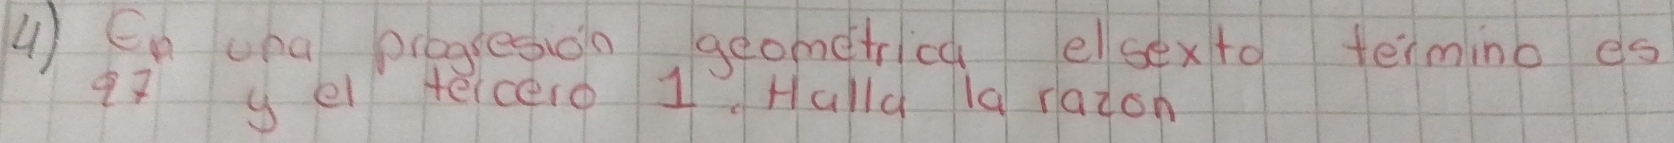 4) En una progresión geometrica el sexto termino es
27 y el tercero 1. Halla la razon